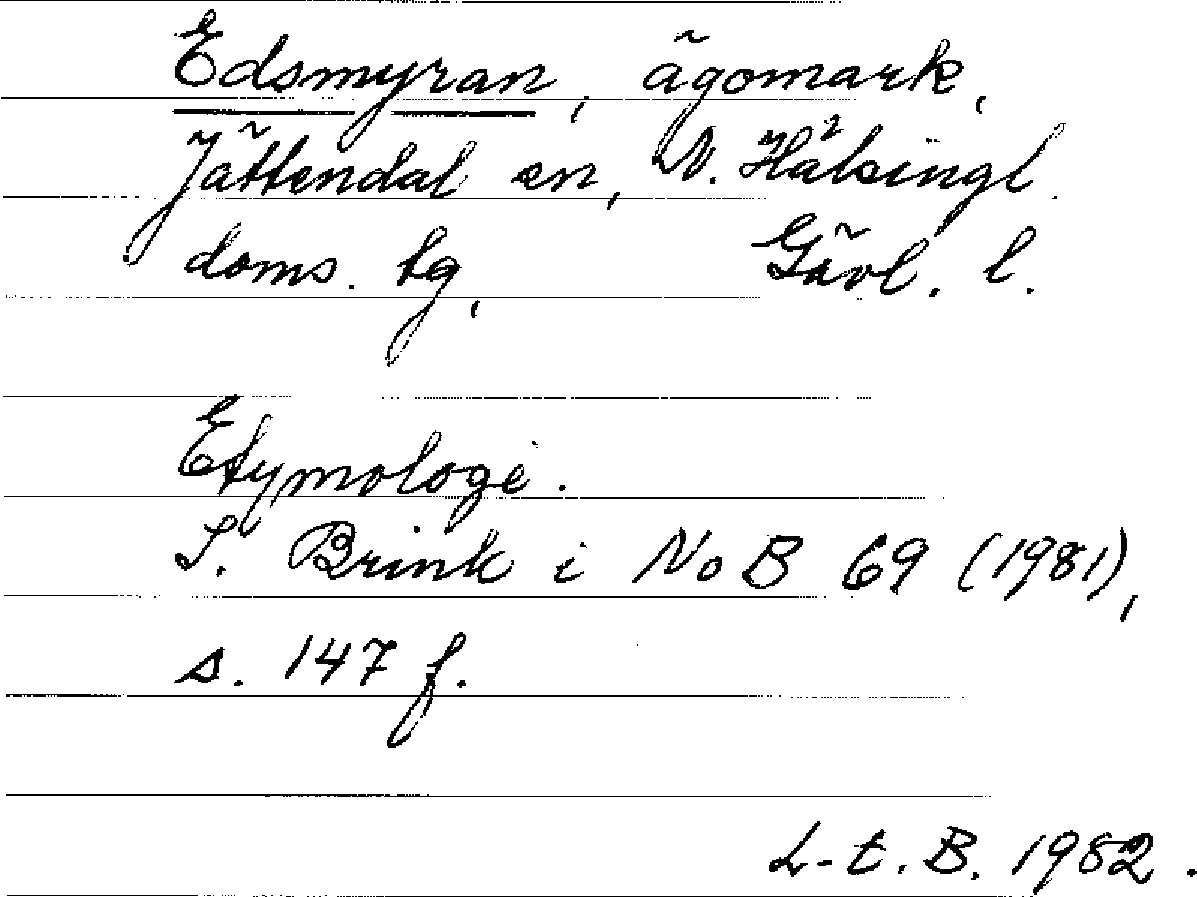 Edsmyran, ägomark,
Jättendal sn, N. Hälsingl.
doms. tg, Gävl. l.
Etymologi.
S. Brink i NoB 69 (1981),
s. 147 f.
L-t. B. 1982.